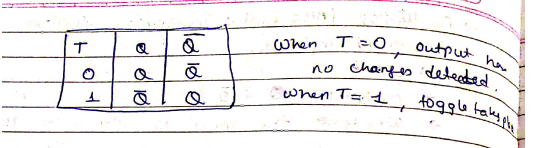 T Q Q̅
0 Q Q̅
1 Q̅ Q
when T=0, output has
no changes detected.
when T=1, toggle takes